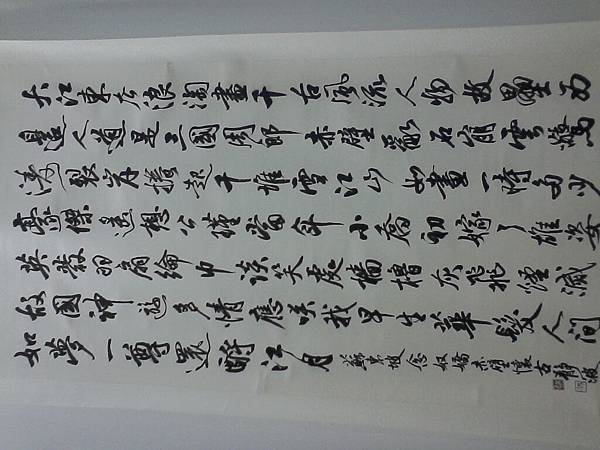 大江東去浪淘盡千古風流人物故壘西
邊人道是三國周郎赤壁亂石崩雲驚
濤裂岸捲起千堆雪江山如畫一時多少
豪傑遙想公瑾當年小喬初嫁了雄姿
英發羽扇綸巾談笑處檣櫓灰飛煙滅
故國神遊多情應笑我早生華髮人間
如夢一尊還酹江月 蘇東坡念奴嬌赤壁懷古 靜波